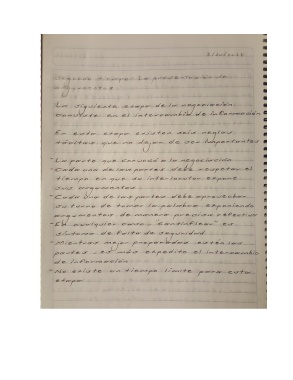 Segunda Etapa: La presentación de
argumentos
La siguiente etapa de la negociación
consiste en el intercambio de información
En esta etapa existen seis reglas
tácitas que no dejan de ser importantes
- La parte que convocó a la negociación
- Cada una de las partes debe respetar el
tiempo en que su interlocutor expone
sus argumentos.
- Cada una de las partes debe aprovechar
su turno de tomar la palabra exponiendo
argumentos de manera precisa
- En cualquier caso es
síntoma de falta de seguridad
- Mientras mejor preparadas estén las
partes, es más expedito el intercambio
de información.
- No existe un tiempo límite para esta
etapa